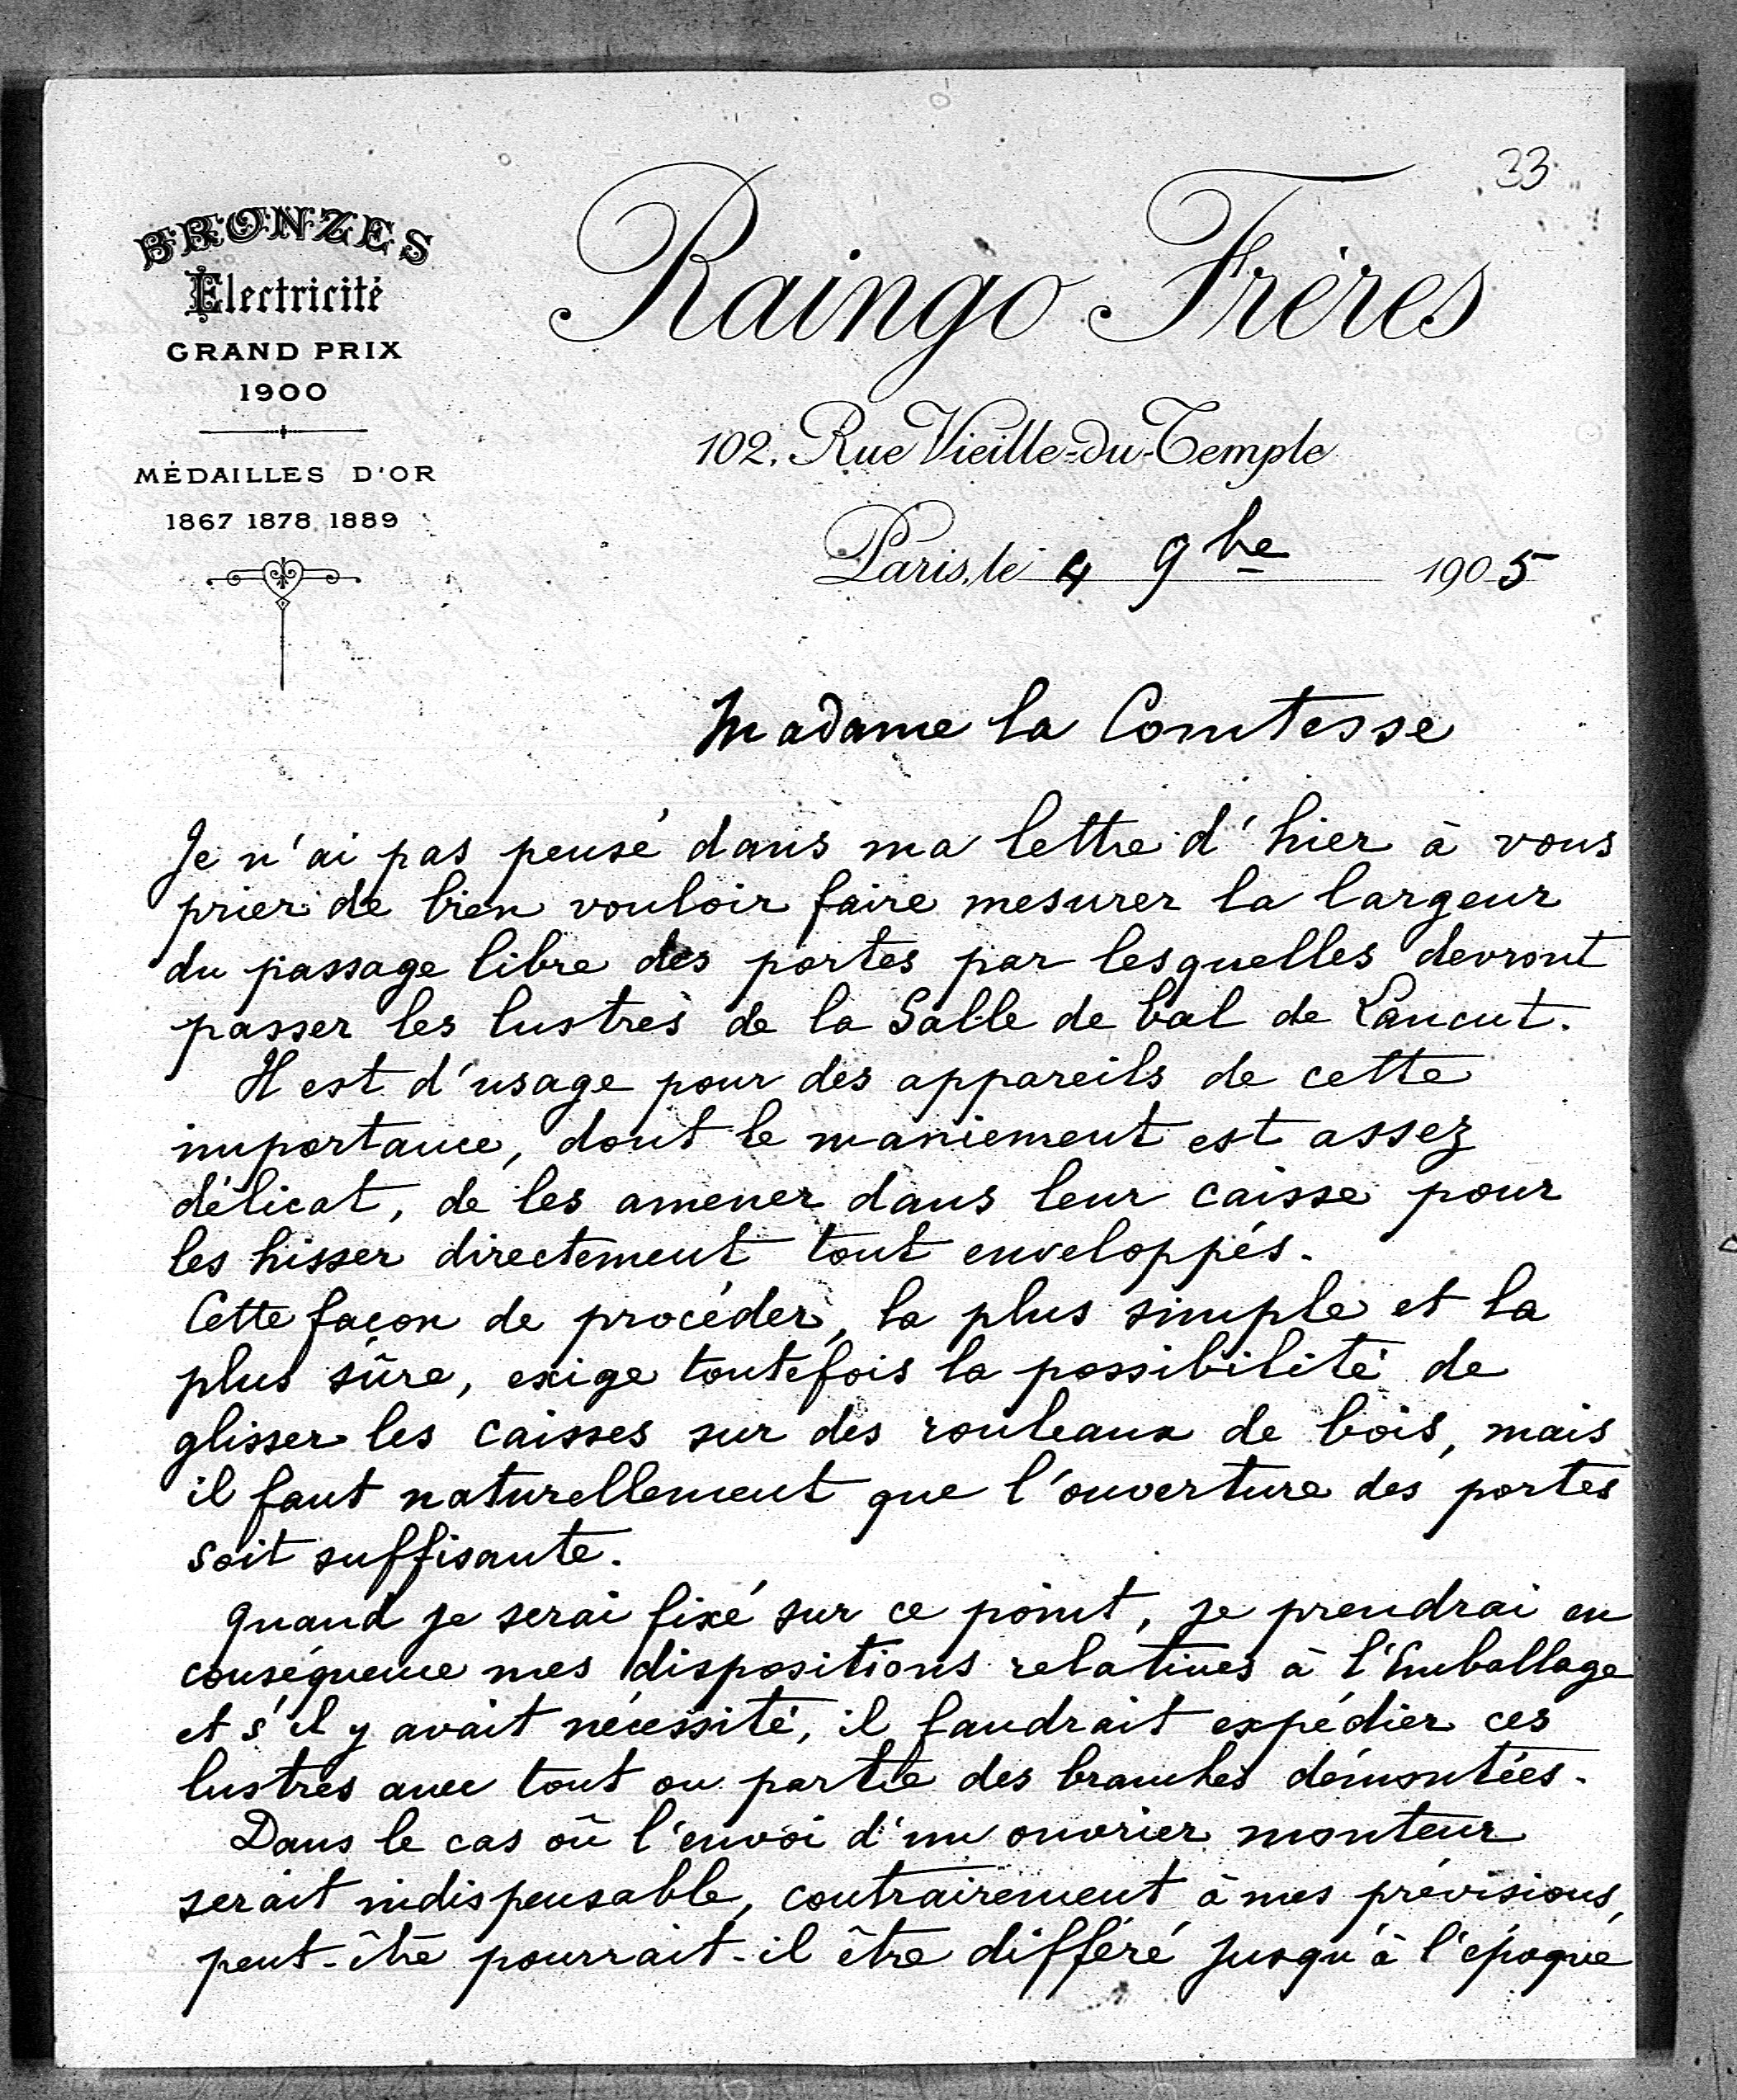 33
BRONZES
Electricité
GRAND PRIX
1900
MÉDAILLES D'OR
1867 1878 1889
Raingo Frères
102, Rue Vieille-du-Temple
Paris, le 4 9bre 1905
Madame la Comtesse
Je n'ai pas pensé dans ma lettre d'hier à vous
prier de bien vouloir faire mesurer la largeur
du passage libre des portes par lesquelles devront
passer les lustres de la Salle de bal de Lancut.
Il est d'usage pour des appareils de cette
importance, dont le maniement est assez
délicat, de les amener dans leur caisse pour
les hisser directement tout enveloppés.
Cette façon de procéder, la plus simple et la
plus sûre, exige toutefois la possibilité de
glisser les caisses sur des rouleaux de bois, mais
il faut naturellement que l'ouverture des portes
soit suffisante.
Quand je serai fixé sur ce point, je prendrai en
conséquence mes dispositions relatives à l'Emballage
et s'il y avait nécessité, il faudrait expédier ces
lustres avec tout ou partie des branches démontées.
Dans le cas où l'envoi d'un ouvrier monteur
serait indispensable, contrairement à mes prévisions,
peut-être pourrait-il être différé jusqu'à l'époque